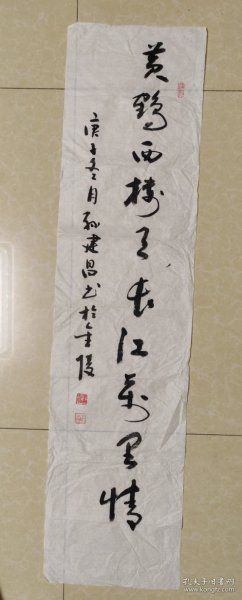 黄鹤西楼月长江萬里情
庚子冬月孙建昌书於金陵
孔夫子旧书网